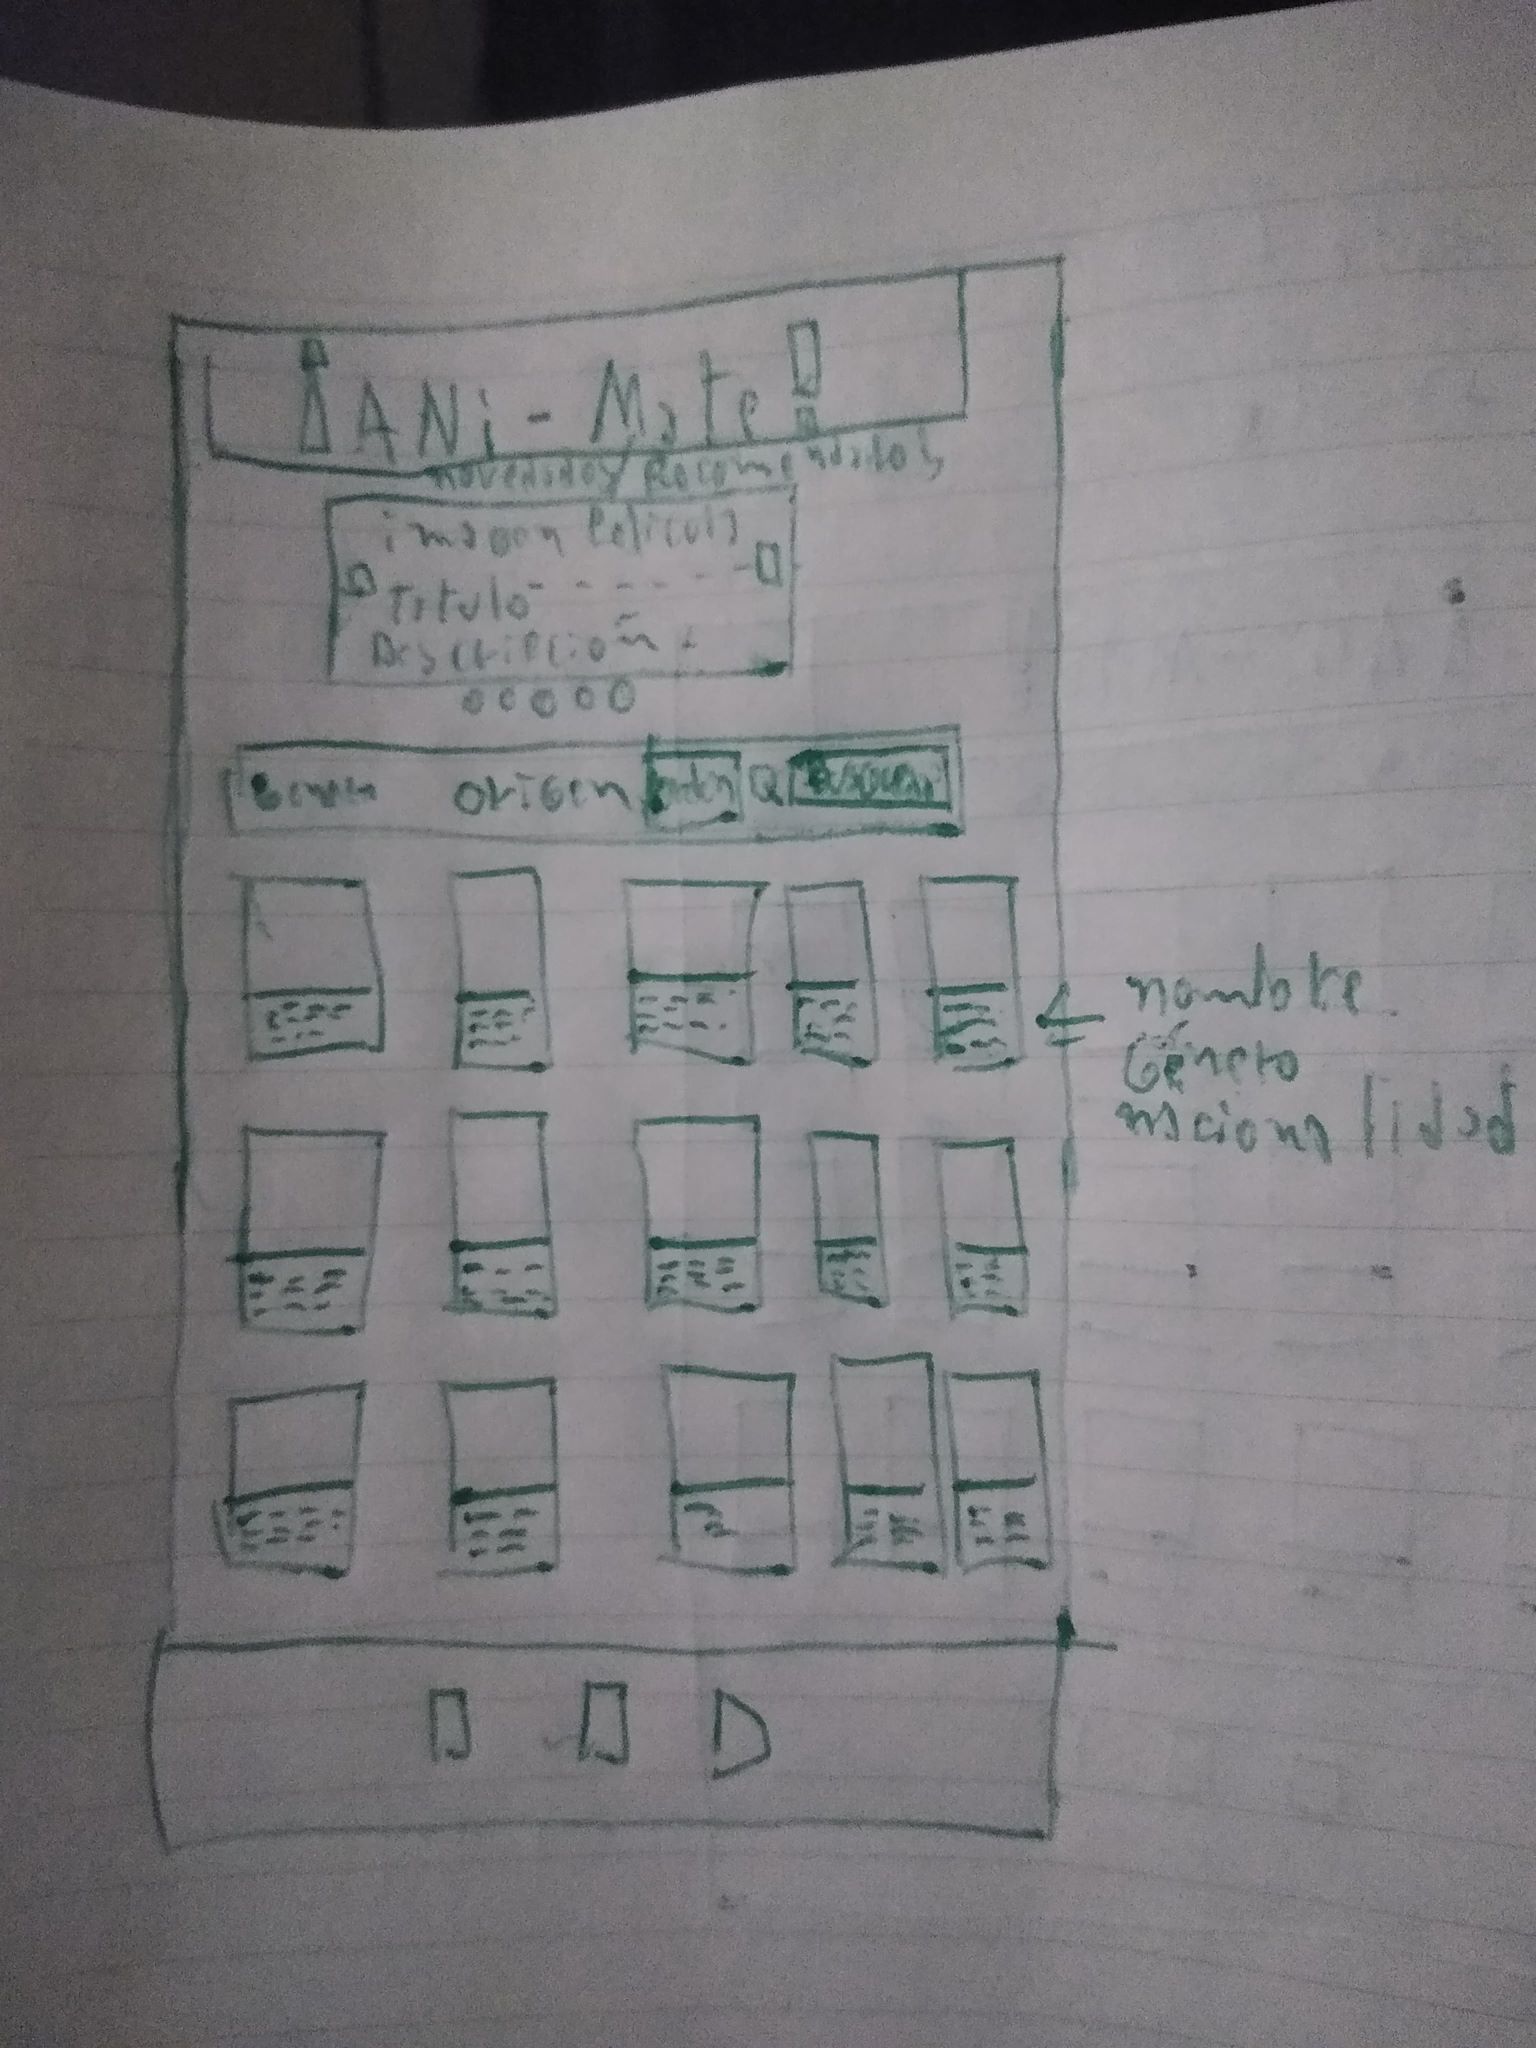 ¡ANi-Mate!
novedades y Recomendados
imagen Pelicula
Titulo
Descripcion
origen orden Q Buscar
nombre
Género
nacionalidad